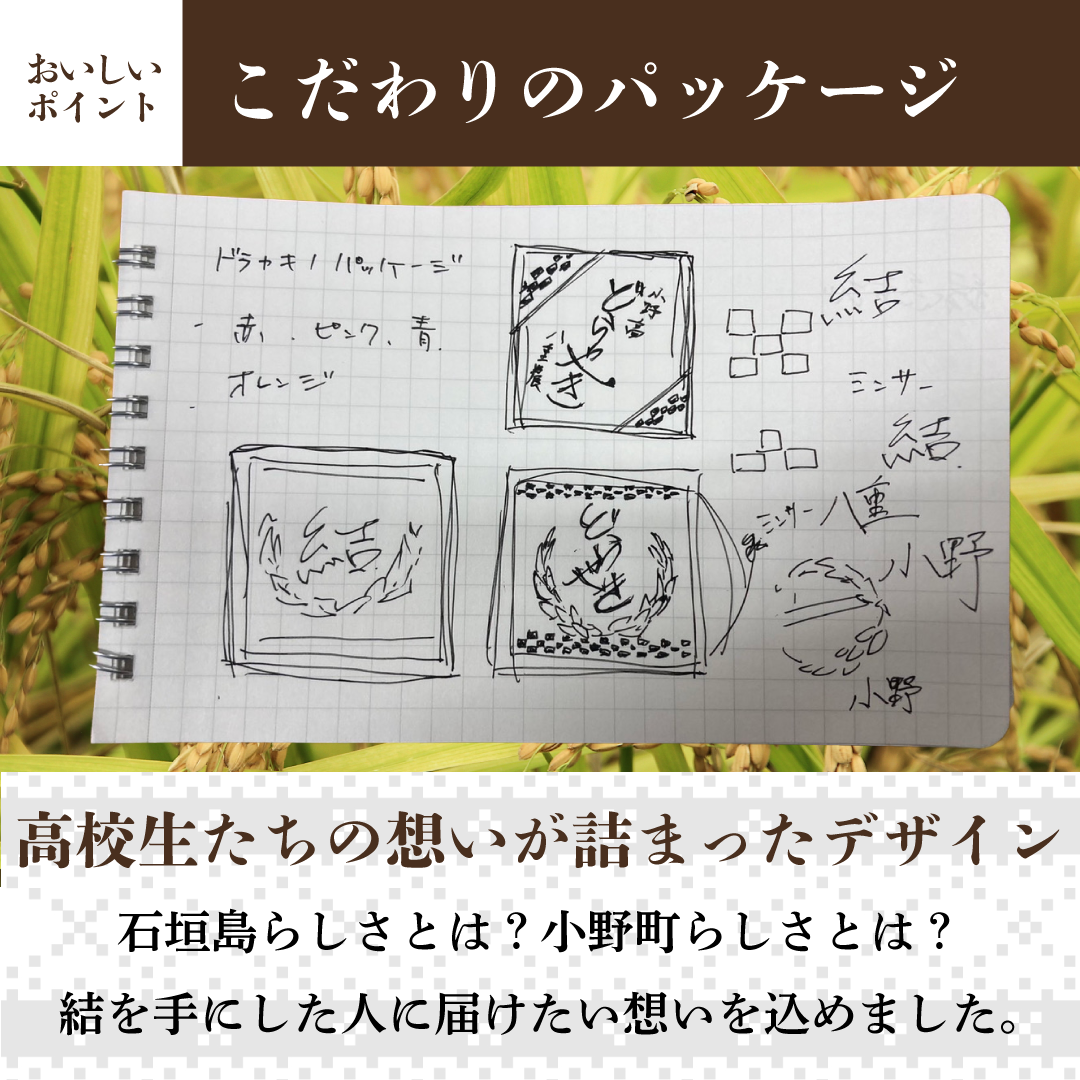 おいしい
ポイント
こだわりのパッケージ
ドラヤキノパッケージ
赤、ピンク、青
オレンジ
小野高
どらやき
八重農
結
ミンサー
結
結
どらやき
ミンサー八重
小野
小野
高校生たちの想いが詰まったデザイン
石垣島らしさとは？小野町らしさとは？
結を手にした人に届けたい想いを込めました。